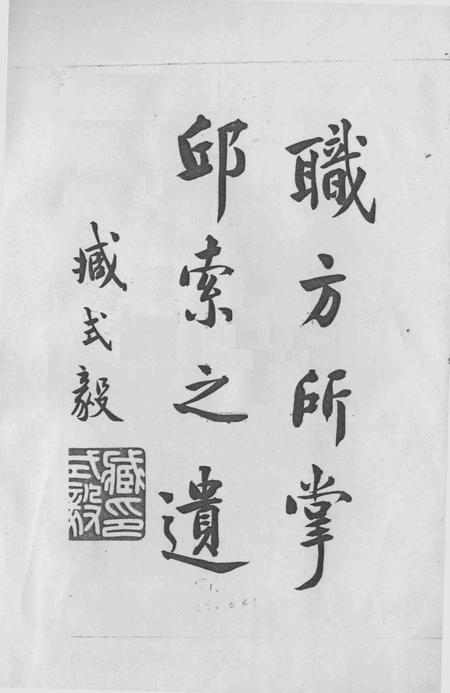 職方所掌
邱索之遺
臧式毅
臧式毅印